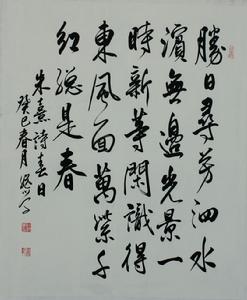 勝日尋芳泗水
濱無邊光景一
時新等閑識得
東風面萬紫千
紅總是春
朱熹詩春日
癸巳春月